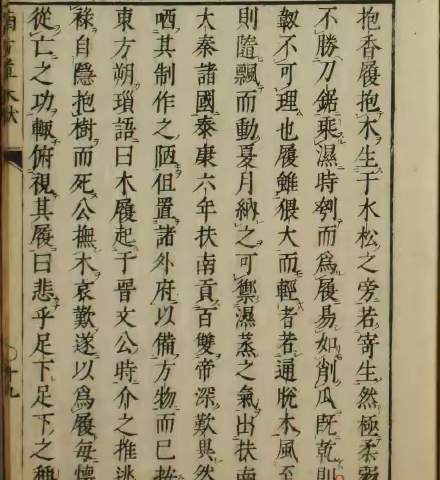 抱香履抱木生于水松之旁若寄生然極柔弱
不勝刀鋸乘濕時刳而爲履易如削瓜既乾則
韌不可理也履雖猥大而輕者若通脫木風至
則隨飄而動夏月納之可禦濕蒸之氣出扶南
大秦諸國泰康六年扶南貢百雙帝深歎異然
哂其制作之陋但置諸外府以備方物而已按
東方朔瑣語曰木履起于晉文公時介之推逃
祿自隱抱樹而死公撫木哀歎遂以爲履每懷
從亡之功輒俯視其履曰悲乎足下足下之稱
南方草木狀
十九